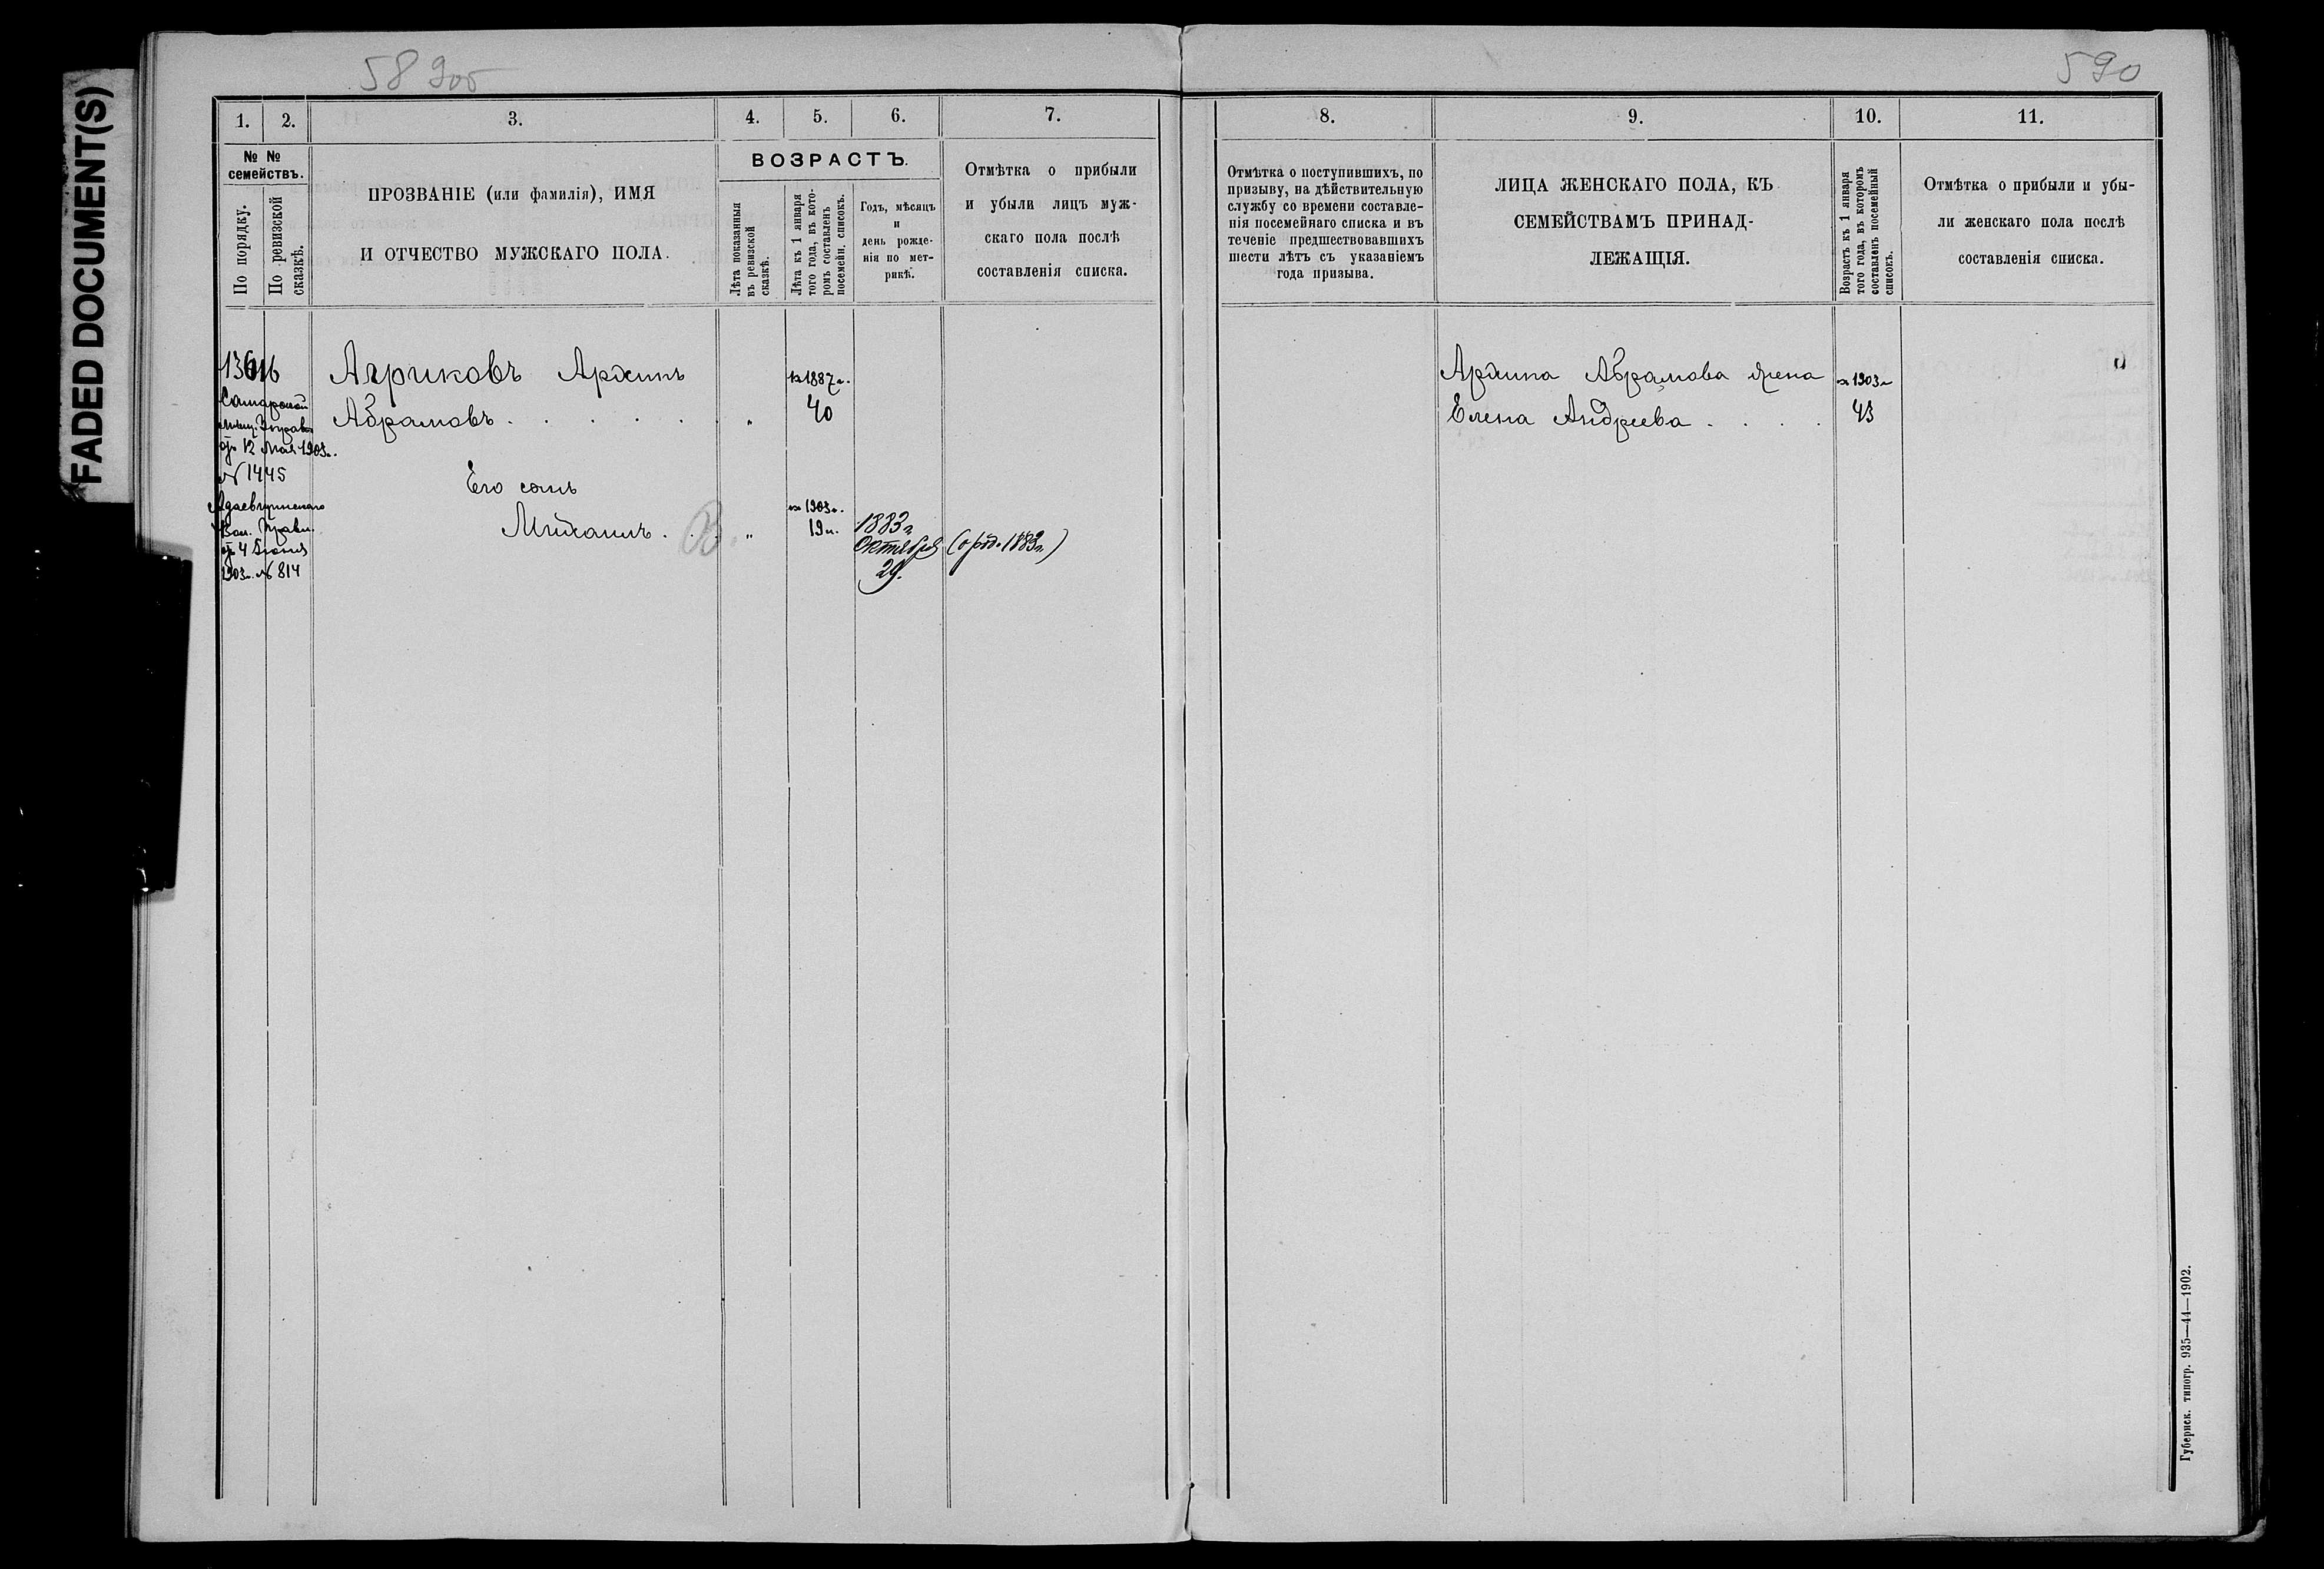 FADED DOCUMENT(S)
589об
590
1.
2.
3.
4.
5.
6.
7.
№ №
семействъ.
По порядку.
По ревизской
сказкѣ.
ПРОЗВАНІЕ (или фамилія), ИМЯ
И ОТЧЕСТВО МУЖСКАГО ПОЛА.
ВОЗРАСТЪ.
Лѣта показанныя
въ ревизской
сказкѣ.
Лѣта къ 1 января
того года, въ кото-
ромъ составленъ
посемейн. списокъ.
Годъ, мѣсяцъ
и
день рожде-
нія по мет-
рикѣ.
Отмѣтка о прибыли
и убыли лицъ муж-
скаго пола послѣ
составленія списка.
Самарской
мѣщ. Управы
отъ 12 мая 1903г.
№ 1445
Вол. Правл.
отъ 4 Іюня
1903г. № 814
Агриковъ Архипъ
Абрамовъ . . . . . „
въ 1887г.
40
Его сынъ
Михаилъ . . . „
въ 1903г.
19л.
1883г
Октября
29.
(о род. 1883г)
8.
9.
10.
11.
Отмѣтка о поступившихъ, по
призыву, на дѣйствительную
службу со времени составле-
нія посемейнаго списка и въ
теченіе предшествовавшихъ
шести лѣтъ съ указаніемъ
года призыва.
ЛИЦА ЖЕНСКАГО ПОЛА, КЪ
СЕМЕЙСТВАМЪ ПРИНАД-
ЛЕЖАЩІЯ.
Возрастъ къ 1 января
того года, въ которомъ
составленъ посемейный
списокъ.
Отмѣтка о прибыли и убы-
ли женскаго пола послѣ
составленія списка.
Архипа Абрамова жена
Елена Андреева . . . .
въ 1903г
43
Губернск. типогр. 935—44—1902.